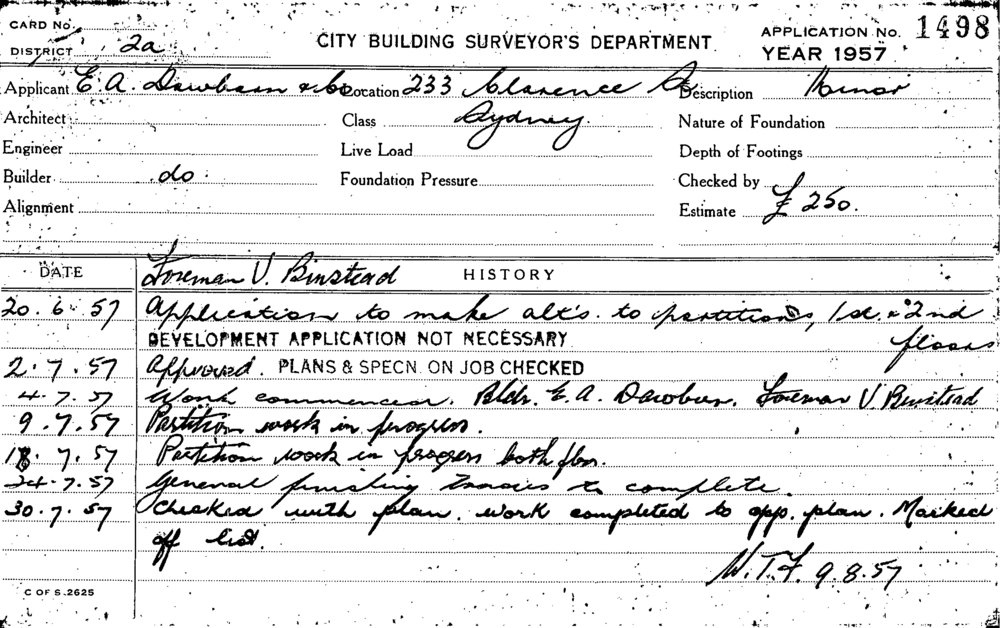 CARD No.
DISTRICT 2a
CITY BUILDING SURVEYOR'S DEPARTMENT
APPLICATION No. 1498
YEAR 1957
Applicant E. A. Dawbarn & Co Location 233 Clarence St Description Minor
Architect Class Sydney. Nature of Foundation
Engineer Live Load Depth of Footings
Builder do. Foundation Pressure Checked by
Alignment Estimate £ 250.
DATE Foreman V. Binstead HISTORY
20.6.57 Application to make alt's. to partitions, 1st & 2nd floors
DEVELOPMENT APPLICATION NOT NECESSARY
2.7.57 Approved. PLANS & SPECN. ON JOB CHECKED
4.7.57 Work commenced. Bldr. E. A. Dawbarn. Foreman V. Binstead
9.7.57 Partition work in progress.
18.7.57 Partition work in progress both flrs.
24.7.57 General finishing to complete.
30.7.57 Checked with plan. work completed to app. plan. Marked
off list.
W.T.F. 9.8.57
C OF S.2625